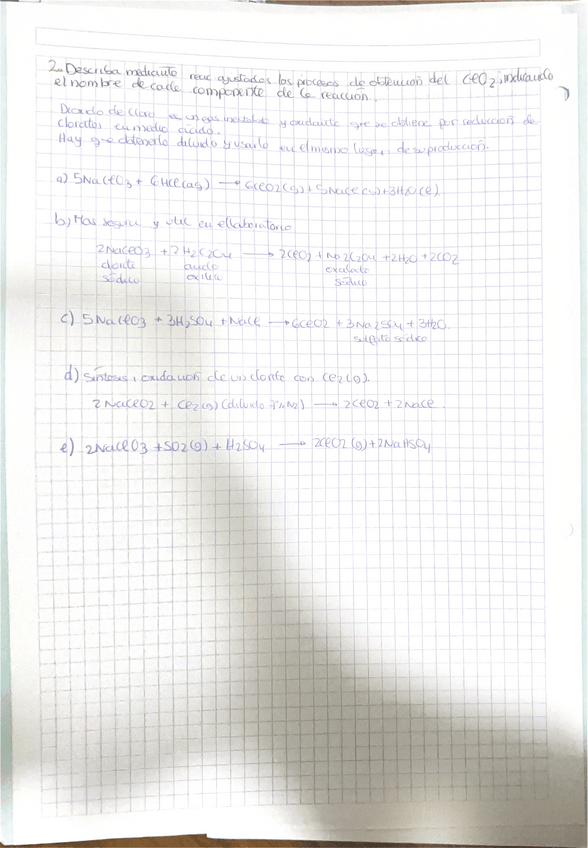 2. Describa mediante reac ajustadas los procesos de obtención del ClO2, indicando
el nombre de cada componente de la reacción.
Dióxido de cloro es un gas inestable y oxidante que se obtiene por reducción de
cloratos en medio ácido.
Hay que obtenerlo diluido y usarlo en el mismo lugar de su producción.
a) 5NaClO3 + 6HCl(aq) → 6ClO2(g) + 5NaCl(s) + 3H2O(l).
b) Mas seguro y util en el laboratorio
2NaClO3 + 2H2C2O4 → 2ClO2 + Na2C2O4 + 2H2O + 2CO2
clorato ácido oxalato
sódico oxálico sódico
c) 5NaClO3 + 3H2SO4 + NaCl → 6ClO2 + 3Na2SO4 + 3H2O.
sulfato sódico
d) Síntesis, oxidación de un clorito con Cl2(g).
2NaClO2 + Cl2(g) (diluido N2) → 2ClO2 + 2NaCl
e) 2NaClO3 + SO2(g) + H2SO4 → 2ClO2(g) + 2NaHSO4